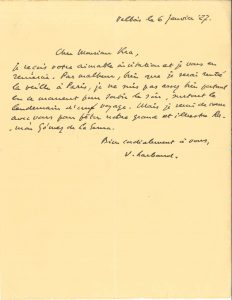 Valbois le 6 Janvier 27.
Cher Monsieur Kra,
Je reçois votre aimable invitation et je vous en
remercie. Par malheur, bien que je serai rentré
la veille à Paris, je ne suis pas assez bien portant
en ce moment pour sortir le soir, surtout le
lendemain d'un voyage. Mais je serai de cœur
avec vous pour fêter notre grand et illustre Ra-
món Gómez de la Serna.
Bien cordialement à vous,
V. Larbaud.